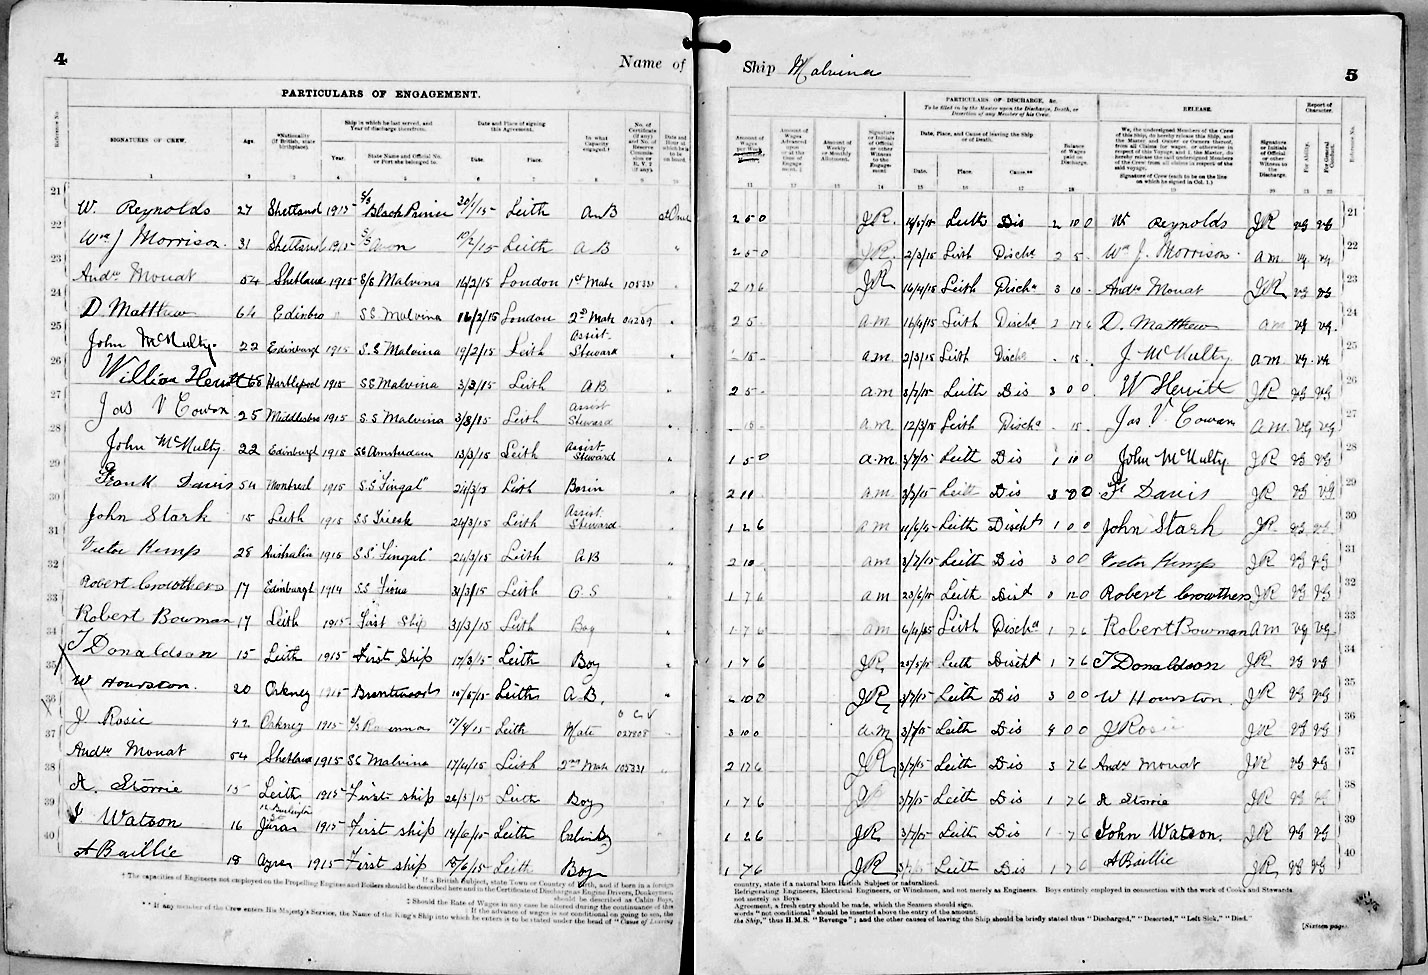 4
Name of
PARTICULARS OF ENGAGEMENT.
SIGNATURES OF CREW.
Age.
*Nationality
(If British, state
birthplace).
Ship in which he last served, and
Year of discharge therefrom.
Year.
State Name and Official No.
or Port she belonged to.
Date and Place of signing
this Agreement.
Date.
Place.
In what
Capacity
engaged.†
21 W. Reynolds 27 Shetland 1915 S/S Black Prince 20/1/15 Leith A.B at Once
22 Wm J Morrison. 31 Shetland 1915 S/S Avon 10/2/15 Leith A B "
23 Andw Mouat 54 Shetland 1915 S/S Malvina 16/2/15 London 1st Mate 105331 "
24 D. Matthew 64 Edinbro " S S Malvina 16/2/15 London 2nd Mate 04239 "
25 John McNulty. 22 Edinburgh 1915 S.S Malvina 19/2/15 Leith Assist. Steward "
26 William Hewitt 68 Hartlepool 1915 SS Malvina 3/3/15 Leith A B "
27 Jas V Cowan 25 Middlesbro 1915 S S Malvina 3/3/15 Leith Assist Steward "
28 John McNulty 22 Edinburgh 1915 SS Amsterdam 13/3/15 Leith Assist. Steward "
29 Frank Davis 54 Montreal 1915 S.S "Fingal" 24/3/15 Leith Bosun "
30 John Stark 15 Leith 1915 S S 24/3/15 Leith Assist. Steward "
31 Victor Kemp 28 Australia 1915 S.S "Fingal" 24/3/15 Leith A B "
32 Robert Crowthers 17 Edinburgh 1914 S.S 31/3/15 Leith O.S "
33 Robert Bowman 17 Leith 1915 First Ship 31/3/15 Leith Boy "
34 T Donaldson 15 Leith 1915 First Ship 17/3/15 Leith Boy "
35 W Hourston. 20 Orkney 1915 Brentwood 10/5/15 Leith A.B. "
36 J Rosie 42 Orkney 1915 17/4/15 Leith Mate
37 Andw Mouat 54 Shetland 1915 SS Malvina 17/4/15 Leith 2nd Mate 105331 "
38 A. Storrie 15 Leith 1915 First ship Leith Boy
39 J Watson 16 1915 First ship 14/6/15 Leith Cabin Boy
40 A Baillie 18 1915 First ship 18/6/15 Leith Boy
Ship Malvina
5
PARTICULARS OF DISCHARGE, &c.
To be filled in by the Master upon the Discharge, Death, or
Desertion of any Member of his Crew.
Date, Place, and Cause of leaving the Ship
or of Death.
Date.
Place.
Cause.**
Balance
of Wages
paid on
Discharge.
RELEASE.
We, the undersigned Members of the Crew
of this Ship, do hereby release this Ship, and
the Master and Owner or Owners thereof,
from all Claims for wages or otherwise in
respect of this Voyage, and I, the Master, do
hereby release the said undersigned Members
of the Crew from all claims in respect of the
said voyage.
Signature of Crew (each to be on the line
on which he signed in Col. 1.)
Report of
Character.
2 5 0 JR. Leith Dis 2 10 0 W Reynolds JR VG VG 21
2 5 0 JR. 2/3/15 Leith Dischd 2 5 - Wm J. Morrison a m vg. vg 22
2 17 6 JR 16/4/15 Leith Dischd 3 10 - Andw Mouat JR VG VG 23
2 5 - a.m 16/4/15 Leith Dischd 2 17 6 D. Matthew a m vg vg. 24
- 15 - a.m. 2/3/15 Leith Dischd - 15 - J McNulty a m. vg. vg 25
2 5 - a.m 3/7/15 Leith Dis 3 0 0 W Hewitt JR VG VG 26
- 15 - a m. 12/3/15 Leith Dischd - 15 - Jas V. Cowan a m. VG VG 27
1 5 0 a.m. 3/7/15 Leith Dis 1 10 0 John McNulty JR VG VG 28
2 11 - a m. 3/7/15 Leith Dis 3 0 0 F Davis JR VG VG 29
1 2 6 a m 11/6/15 Leith Discht 1 0 0 John Stark JR VG VG 30
2 10 - a m 3/7/15 Leith Dis 3 0 0 Victor Kemp JR VG VG 31
1 7 6 a m Leith Dist Robert Crowthers JR VG VG 32
1 7 6 a m 6/4/15 Leith Dischd 1 7 6 Robert Bowman a m vg vg 33
1 7 6 JR Leith Discht 1 7 6 T Donaldson JR VG VG 34
2 10 0 JR 3/7/15 Leith Dis 3 0 0 W Hourston. JR VG VG 35
3 10 0 a.m 3/7/15 Leith Dis 4 0 0 J Rosie JR VG VG 36
2 17 6 JR 3/7/15 Leith Dis 3 7 6 Andw Mouat JR VG VG 37
1 7 6 3/7/15 Leith Dis 1 7 6 A Storrie JR VG VG 38
1 2 6 JR 3/7/15 Leith Dis 1 7 6 John Watson. JR VG VG 39
1 7 6 JR Leith Dis 1 7 6 A Baillie JR VG VG 40
† The capacities of Engineers not employed on the Propelling Engines and Boilers should be described here and in the Certificates of Discharge as Engine Drivers, Donkeymen,
should be described as Cabin Boys.
‡ Should the Rate of Wages in any case be altered during the continuance of this
** If any member of the Crew enters His Majesty's Service, the Name of the King's Ship into which he enters is to be stated under the head of "Cause of Leaving
country, state if a natural born British Subject or naturalized.
Refrigerating Engineers, Electrical Engineers, or Winchmen, and not merely as Engineers. Boys entirely employed in connection with the work of Cooks and Stewards
not merely as Boys.
Agreement, a fresh entry should be made, which the Seamen should sign.
words "not conditional" should be inserted above the entry of the amount.
the Ship," thus H.M.S. "Revenge"; and the other causes of leaving the Ship should be briefly stated thus "Discharged," "Deserted," "Left Sick," "Died."
[Sixteen page.